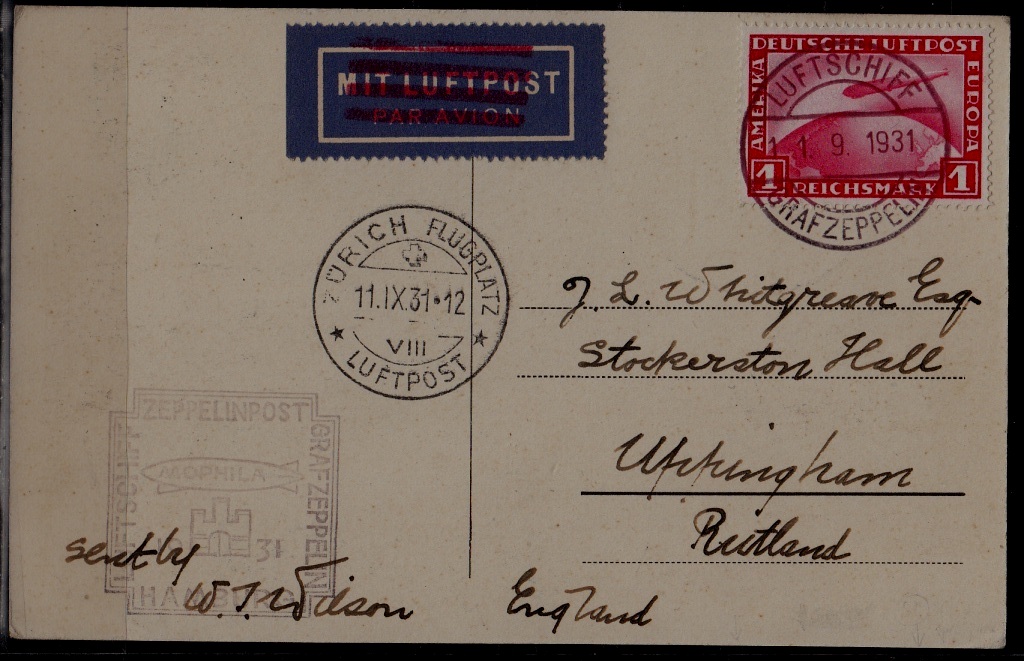 MIT LUFTPOST
PAR AVION
DEUTSCHE LUFTPOST
AMERIKA
EUROPA
1 REICHSMARK 1
LUFTSCHIFF
11.9.1931
GRAFZEPPELIN
ZÜRICH FLUGPLATZ
11.IX.31·12
VIII
LUFTPOST
J. L. Whitgreave Esq.
Stockerston Hall
Uppingham
Rutland
England
ZEPPELINPOST
LUFTSCHIFF
GRAFZEPPELIN
MOPHILA
31
HAMBURG
sent by
W. T. Wilson